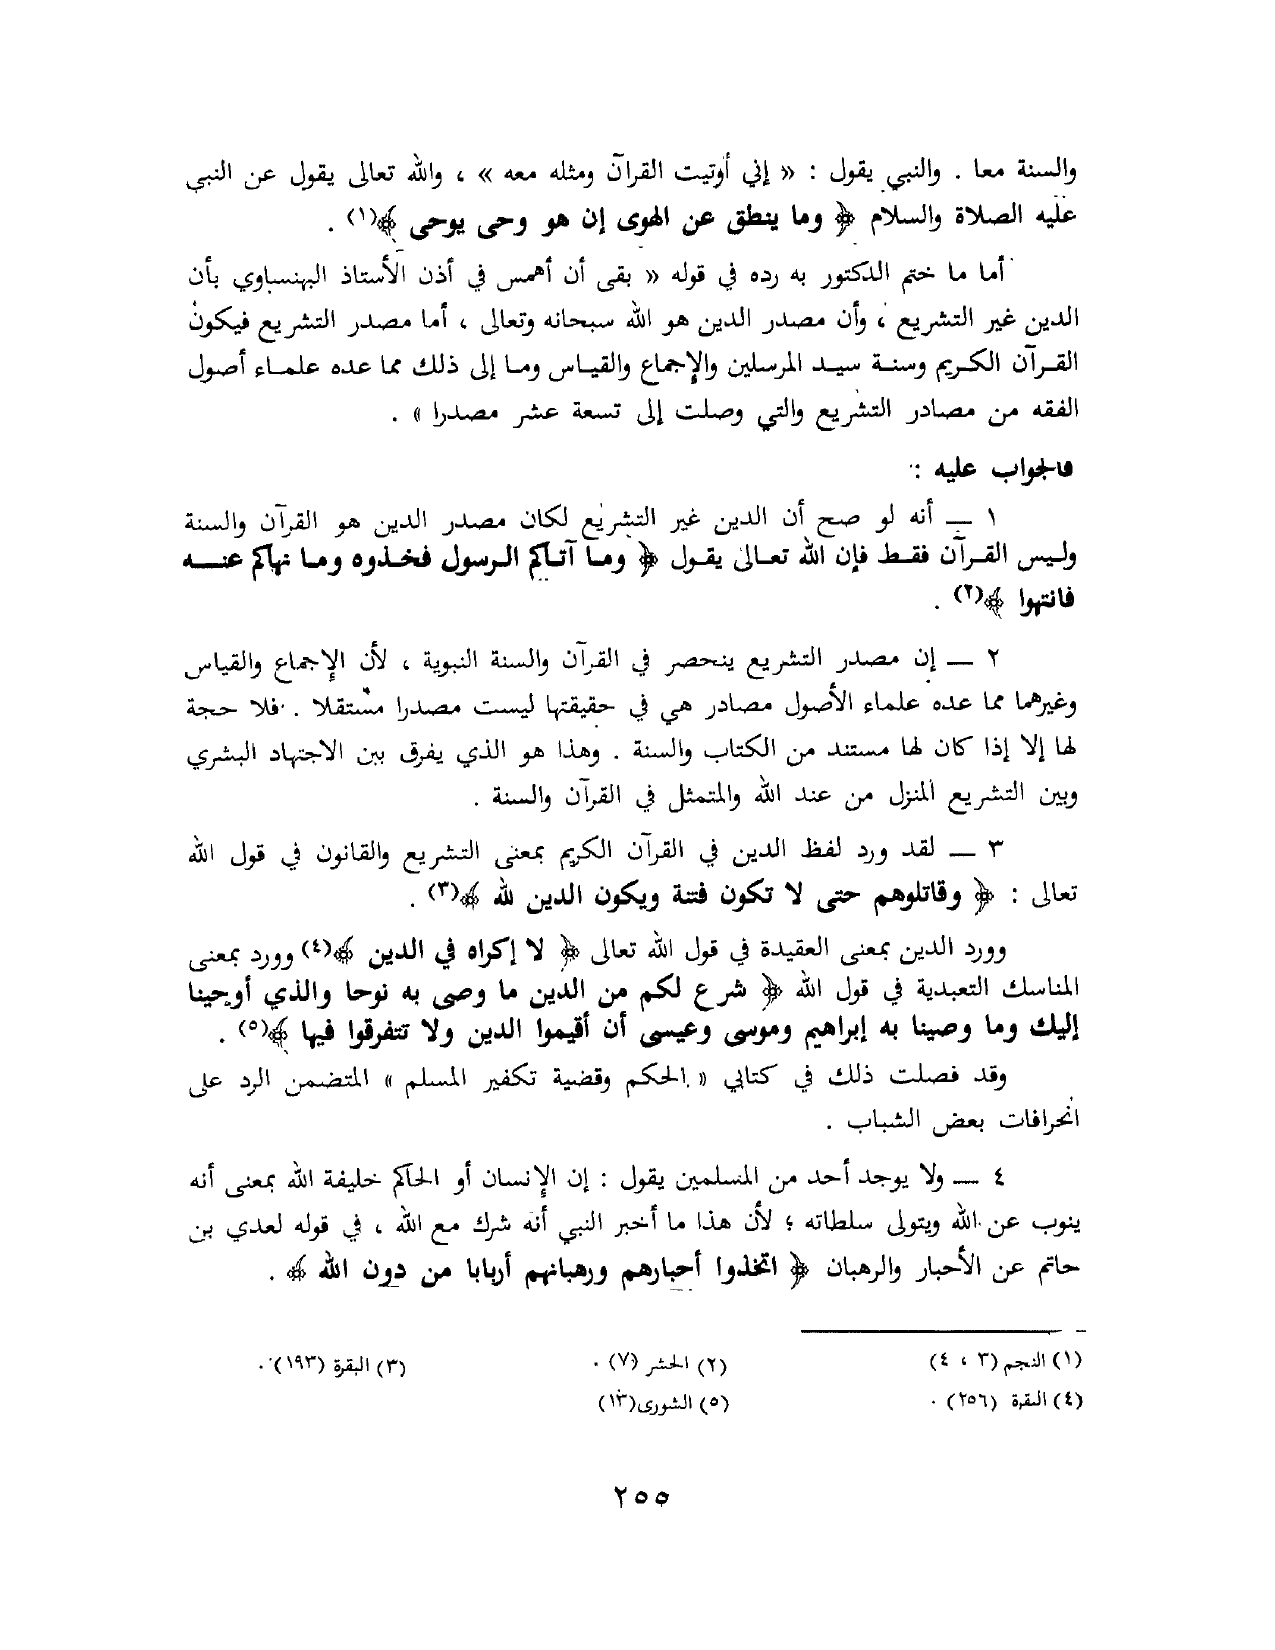 والسنة معا . والنبي يقول : « إني أوتيت القرآن ومثله معه » ، والله تعالى يقول عن النبي
عليه الصلاة والسلام ﴿ وما ينطق عن الهوى إن هو وحى يوحى ﴾(١) .
أما ما ختم الدكتور به رده في قوله « بقى أن أهمس في أذن الأستاذ البهنساوي بأن
الدين غير التشريع ، وأن مصدر الدين هو الله سبحانه وتعالى ، أما مصدر التشريع فيكون
القرآن الكريم وسنة سيد المرسلين والإجماع والقياس وما إلى ذلك مما عده علماء أصول
الفقه من مصادر التشريع والتي وصلت إلى تسعة عشر مصدرا » .
فالجواب عليه :
١ ــ أنه لو صح أن الدين غير التشريع لكان مصدر الدين هو القرآن والسنة
وليس القرآن فقط فإن الله تعالى يقول ﴿ وما آتاكم الرسول فخذوه وما نهاكم عنه
فانتهوا ﴾(٢) .
٢ ــ إن مصدر التشريع ينحصر في القرآن والسنة النبوية ، لأن الإجماع والقياس
وغيرهما مما عده علماء الأصول مصادر هي في حقيقتها ليست مصدرا مستقلا . فلا حجة
لها إلا إذا كان لها مستند من الكتاب والسنة . وهذا هو الذي يفرق بين الاجتهاد البشري
وبين التشريع المنزل من عند الله والمتمثل في القرآن والسنة .
٣ ــ لقد ورد لفظ الدين في القرآن الكريم بمعنى التشريع والقانون في قول الله
تعالى : ﴿ وقاتلوهم حتى لا تكون فتنة ويكون الدين لله ﴾(٣) .
وورد الدين بمعنى العقيدة في قول الله تعالى ﴿ لا إكراه في الدين ﴾(٤) وورد بمعنى
المناسك التعبدية في قول الله ﴿ شرع لكم من الدين ما وصى به نوحا والذي أوحينا
إليك وما وصينا به إبراهيم وموسى وعيسى أن أقيموا الدين ولا تتفرقوا فيها ﴾(٥) .
وقد فصلت ذلك في كتابي « الحكم وقضية تكفير المسلم » المتضمن الرد على
انحرافات بعض الشباب .
٤ ــ ولا يوجد أحد من المسلمين يقول : إن الإنسان أو الحاكم خليفة الله بمعنى أنه
ينوب عن الله ويتولى سلطاته ؛ لأن هذا ما أخبر النبي أنه شرك مع الله ، في قوله لعدي بن
حاتم عن الأحبار والرهبان ﴿ اتخذوا أحبارهم ورهبانهم أربابا من دون الله ﴾ .
(١) النجم (٣ ، ٤) (٢) الحشر (٧) . (٣) البقرة (١٩٣) .
(٤) البقرة (٢٥٦) . (٥) الشورى(١٣)
٢٥٥